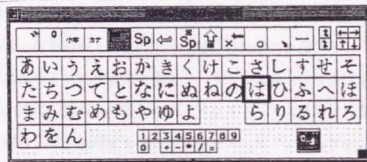 ゛ ゜ 小字 カナ Sp ⇦ Sp ⇧ × ← 。 、 ー
あいうえおかきくけこさしすせそ
たちつてとなにぬねのはひふへほ
まみむめもやゆよ らりるれろ
わをん 1 2 3 4 5 6 7 8 9
0 + - * / =